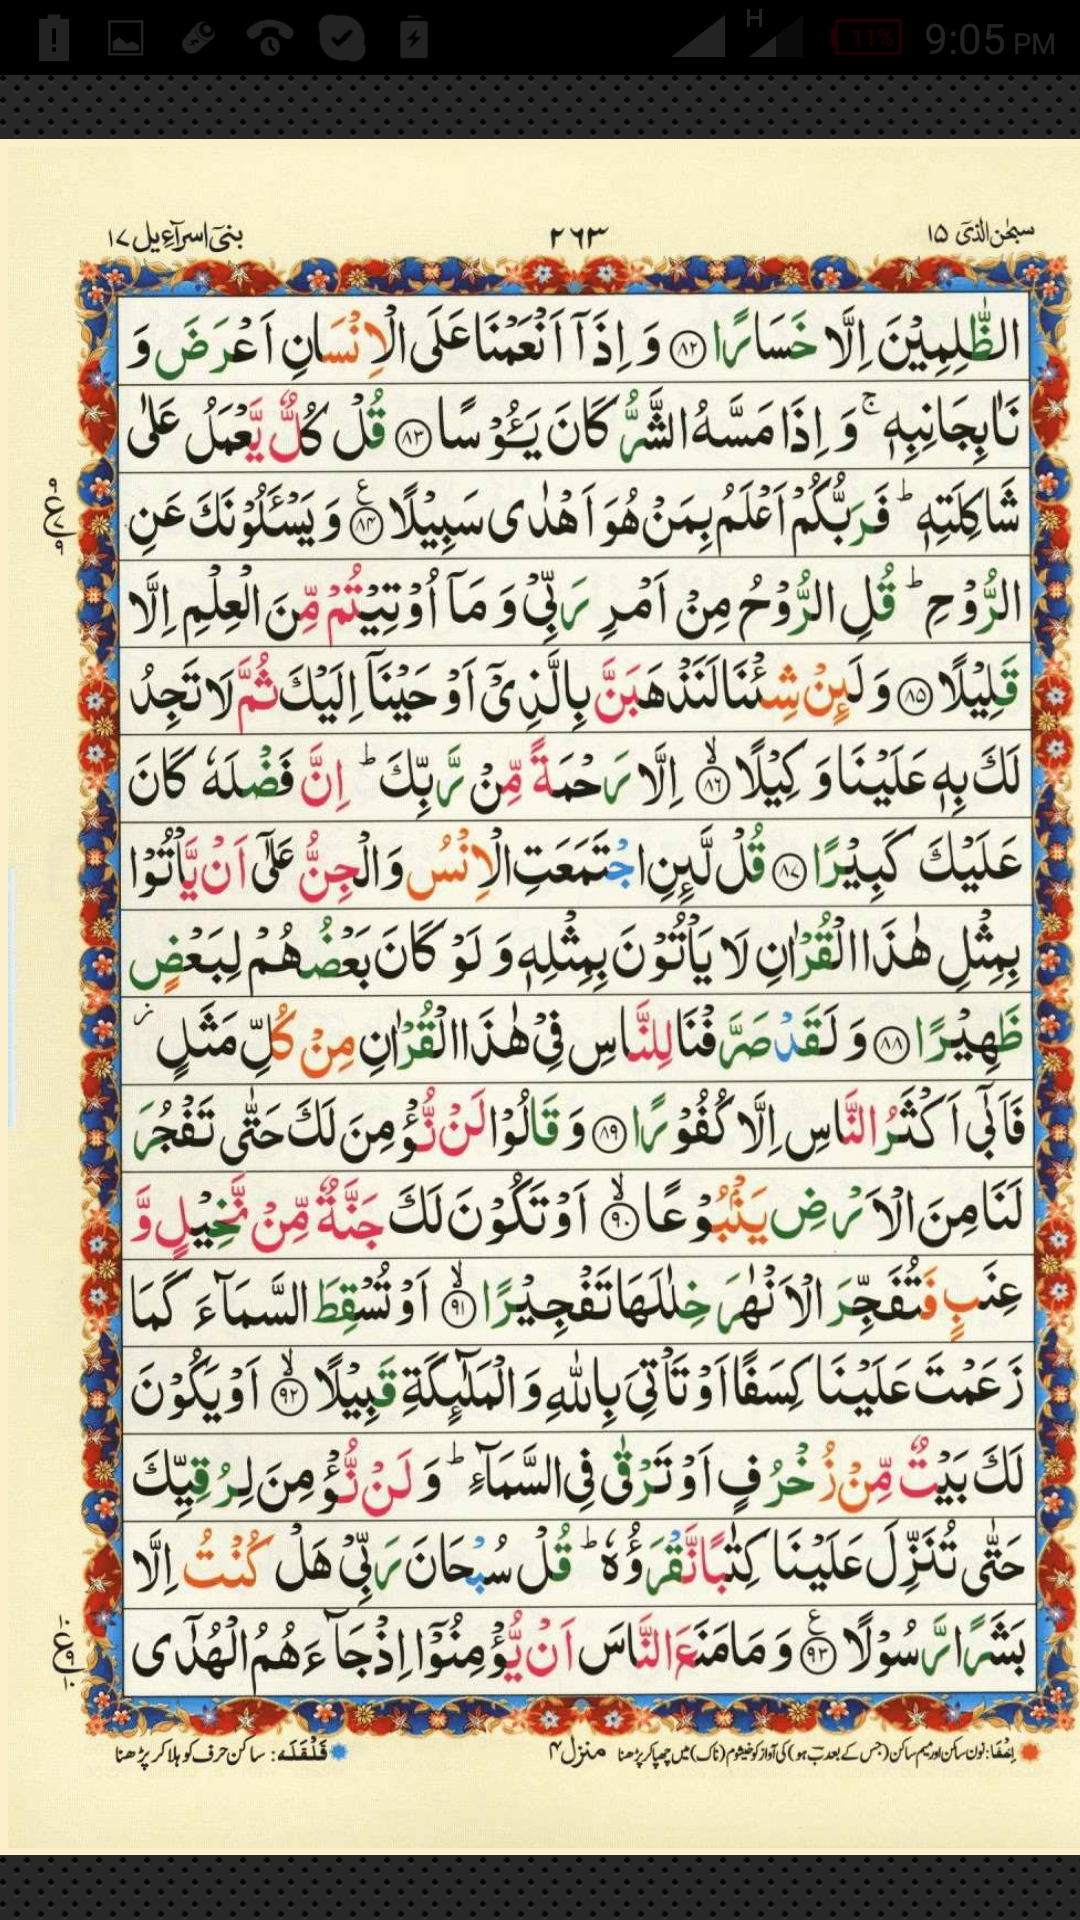 H
11%
9:05 PM
سبحٰن الذیٓ ۱۵
۲۶۳
بنیٓ اسرآءیل ۱۷
الظّٰلِمِیْنَ اِلَّا خَسَارًا ﴿۸۲﴾ وَ اِذَاۤ اَنْعَمْنَا عَلَى الْاِنْسَانِ اَعْرَضَ وَ
نَاٰ بِجَانِبِهٖ ۚ وَ اِذَا مَسَّهُ الشَّرُّ كَانَ یَـُٔوْسًا ﴿۸۳﴾ قُلْ كُلٌّ یَّعْمَلُ عَلٰى
شَاكِلَتِهٖ ؕ فَرَبُّكُمْ اَعْلَمُ بِمَنْ هُوَ اَهْدٰى سَبِیْلًا ﴿۸۴﴾ وَ یَسْـَٔلُوْنَكَ عَنِ
الرُّوْحِ ؕ قُلِ الرُّوْحُ مِنْ اَمْرِ رَبِّیْ وَ مَاۤ اُوْتِیْتُمْ مِّنَ الْعِلْمِ اِلَّا
قَلِیْلًا ﴿۸۵﴾ وَ لَىِٕنْ شِئْنَا لَنَذْهَبَنَّ بِالَّذِیْۤ اَوْحَیْنَاۤ اِلَیْكَ ثُمَّ لَا تَجِدُ
لَكَ بِهٖ عَلَیْنَا وَكِیْلًا ﴿۸۶﴾ۙ اِلَّا رَحْمَةً مِّنْ رَّبِّكَ ؕ اِنَّ فَضْلَهٗ كَانَ
عَلَیْكَ كَبِیْرًا ﴿۸۷﴾ قُلْ لَّىِٕنِ اجْتَمَعَتِ الْاِنْسُ وَ الْجِنُّ عَلٰۤى اَنْ یَّاْتُوْا
بِمِثْلِ هٰذَا الْقُرْاٰنِ لَا یَاْتُوْنَ بِمِثْلِهٖ وَ لَوْ كَانَ بَعْضُهُمْ لِبَعْضٍ
ظَهِیْرًا ﴿۸۸﴾ وَ لَقَدْ صَرَّفْنَا لِلنَّاسِ فِیْ هٰذَا الْقُرْاٰنِ مِنْ كُلِّ مَثَلٍ ؗ
فَاَبٰۤى اَكْثَرُ النَّاسِ اِلَّا كُفُوْرًا ﴿۸۹﴾ وَ قَالُوْا لَنْ نُّؤْمِنَ لَكَ حَتّٰى تَفْجُرَ
لَنَا مِنَ الْاَرْضِ یَنْۢبُوْعًا ﴿۹۰﴾ۙ اَوْ تَكُوْنَ لَكَ جَنَّةٌ مِّنْ نَّخِیْلٍ وَّ
عِنَبٍ فَتُفَجِّرَ الْاَنْهٰرَ خِلٰلَهَا تَفْجِیْرًا ﴿۹۱﴾ۙ اَوْ تُسْقِطَ السَّمَآءَ كَمَا
زَعَمْتَ عَلَیْنَا كِسَفًا اَوْ تَاْتِیَ بِاللّٰهِ وَ الْمَلٰٓىِٕكَةِ قَبِیْلًا ﴿۹۲﴾ۙ اَوْ یَكُوْنَ
لَكَ بَیْتٌ مِّنْ زُخْرُفٍ اَوْ تَرْقٰى فِی السَّمَآءِ ؕ وَ لَنْ نُّؤْمِنَ لِرُقِیِّكَ
حَتّٰى تُنَزِّلَ عَلَیْنَا كِتٰبًا نَّقْرَؤُهٗ ؕ قُلْ سُبْحَانَ رَبِّیْ هَلْ كُنْتُ اِلَّا
بَشَرًا رَّسُوْلًا ﴿۹۳﴾ وَ مَا مَنَعَ النَّاسَ اَنْ یُّؤْمِنُوْۤا اِذْ جَآءَهُمُ الْهُدٰۤى
اِخْفَا: نون ساکن اور میم ساکن (جس کے بعد ب ہو) کی آواز کو خیشوم (ناک) میں چھپا کر پڑھنا
منزل ۴
قَلْقَلَه: ساکن حرف کو ہلا کر پڑھنا